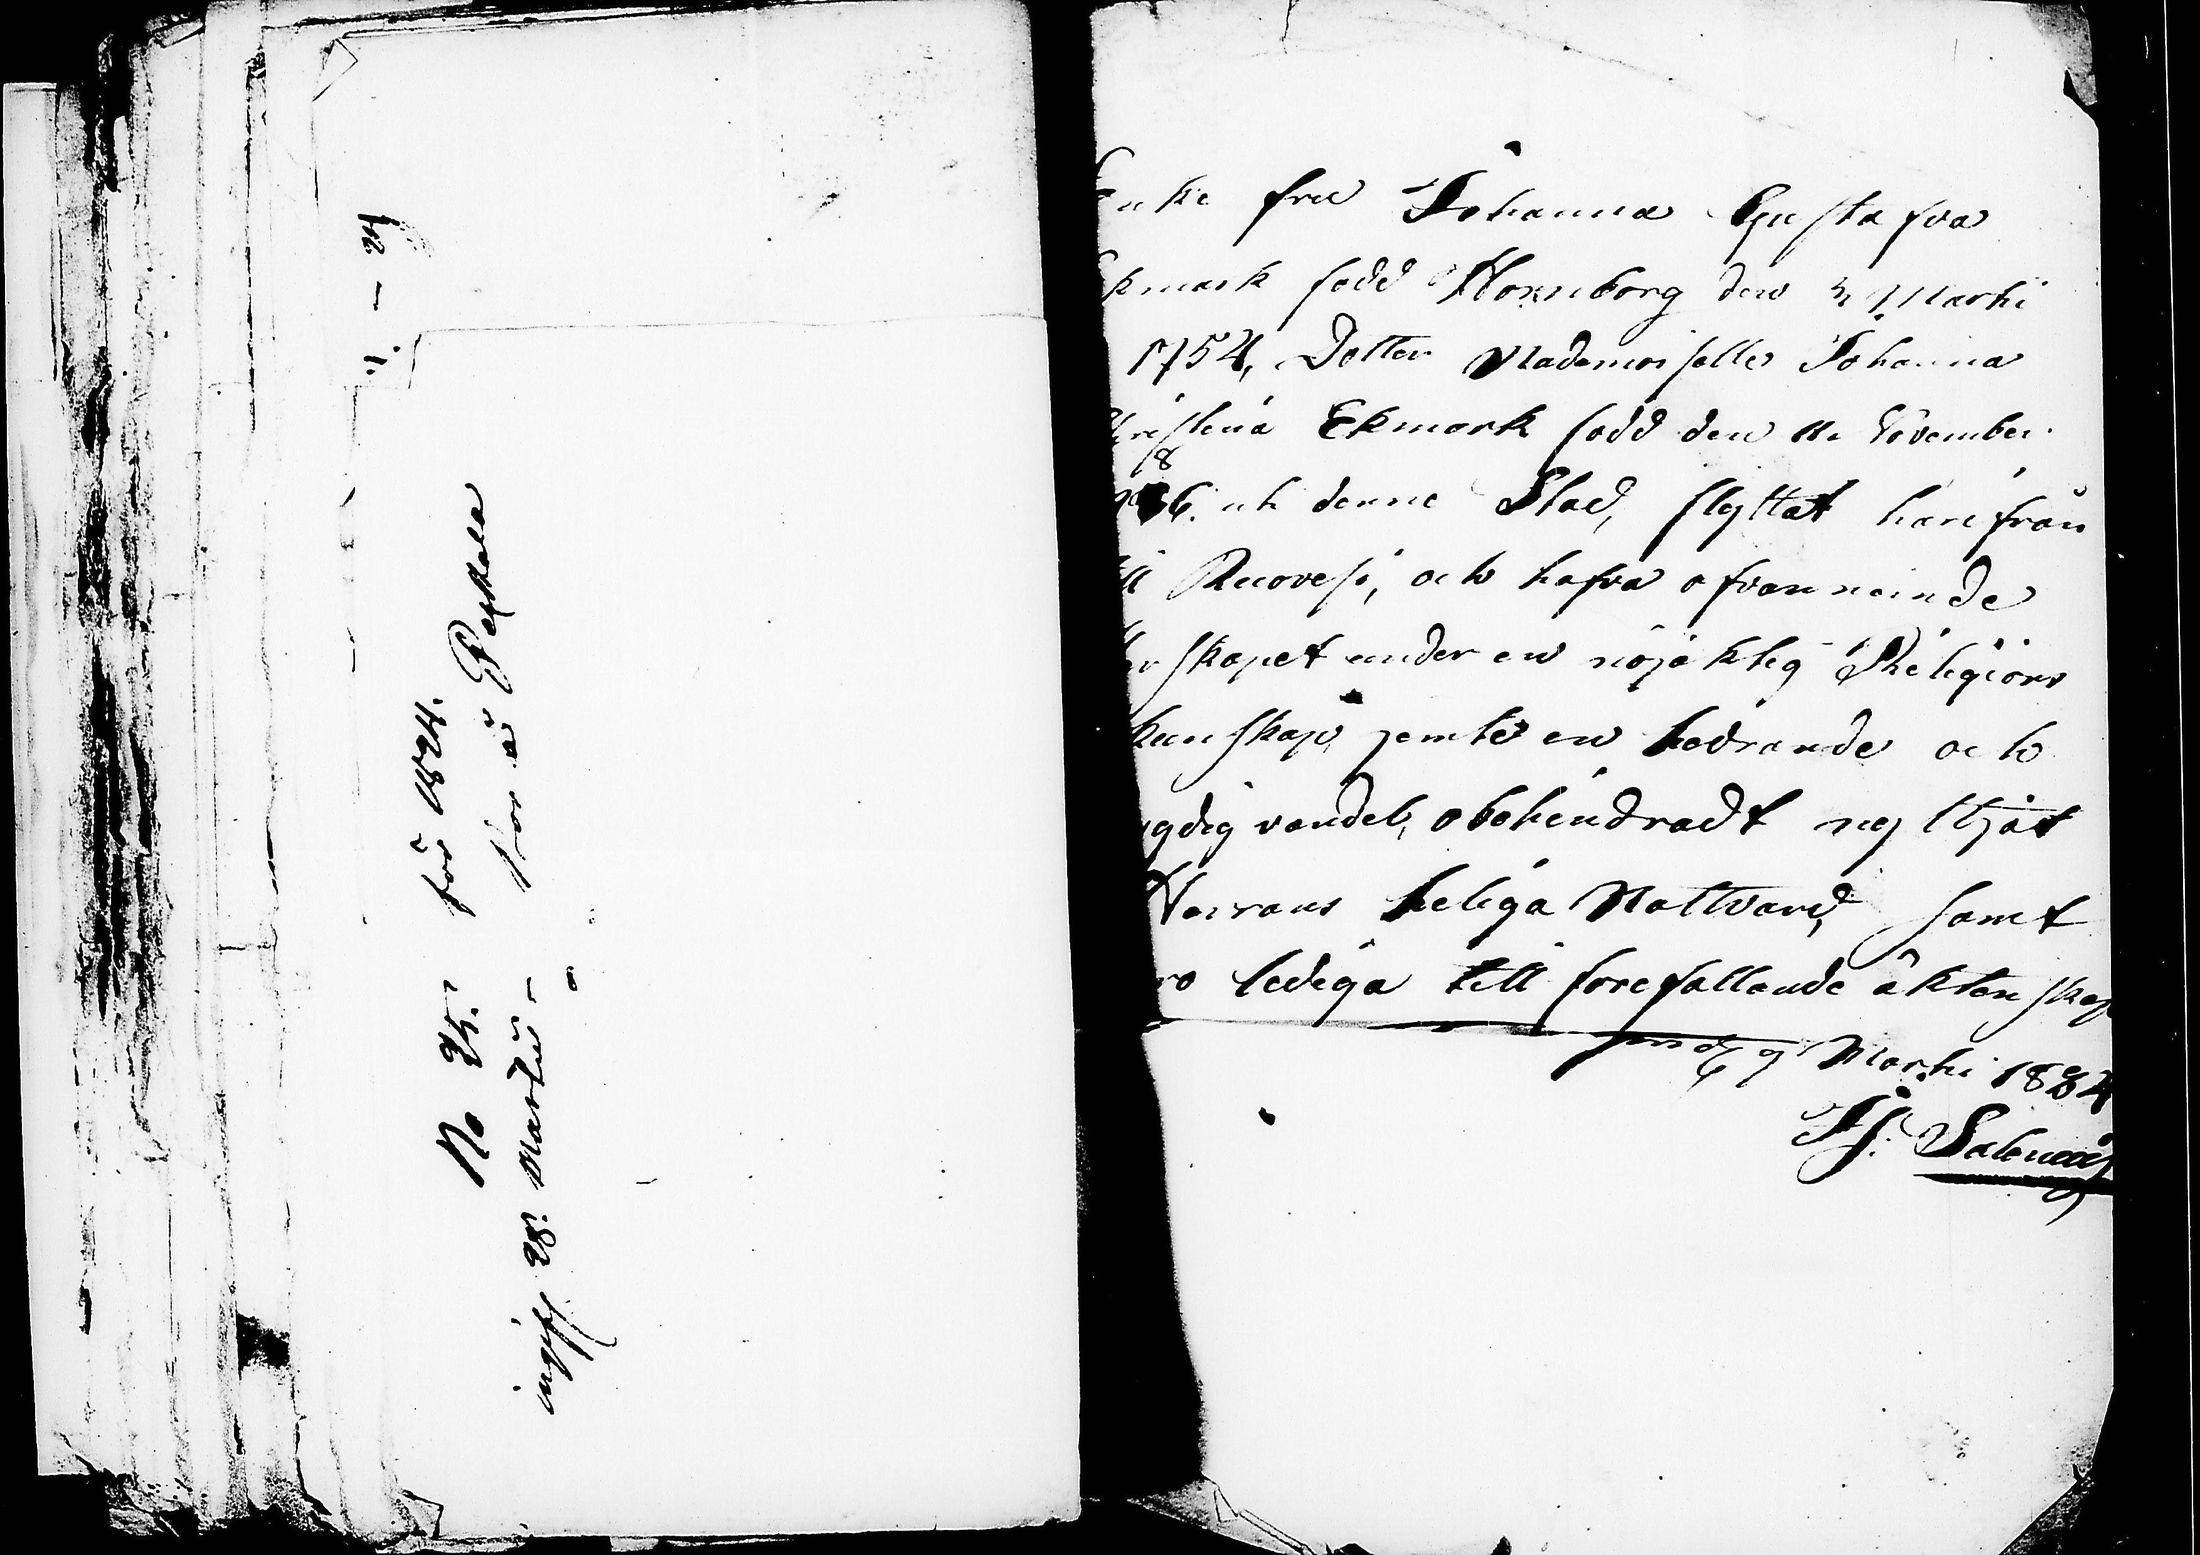 1. – 24
No 25. för 1824.
ingiff 28. Martii – bor å Pekkala
Enke fru Johanna Gustafva
Ekmark född Hornborg den 4 Martii
1754, Dotter Mademoiselle Johanna
Christina Ekmark född den 11 November
86. uti denne Stad, flyttat härifrån
till Ruovesi, och hafva ofvannämde
skapet under en nöjaktig Religions
kunskap, jemte en hedrande och
ygdig vandel, obehindradt nyttjat
Herrans heliga Nattvard, samt
äro lediga till förefallande äktenskap
9 Martii 1824